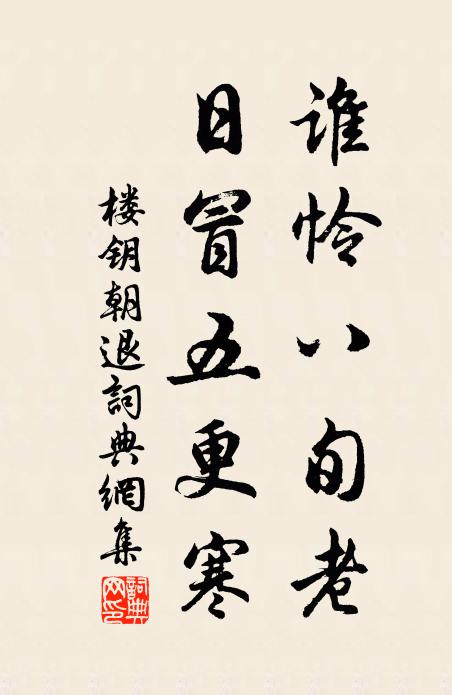 谁怜八旬老
日冒五更寒
楼钥朝退詞典網集
詞典网印